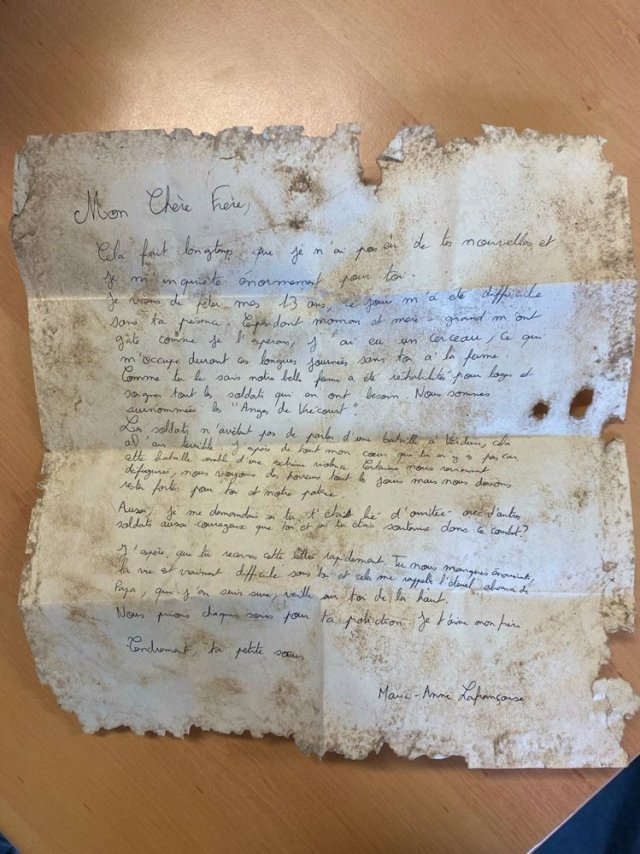 Mon Chère Frère,
Cela fait longtemps que je n'ai pas eu de tes nouvelles et
je m'inquiète énormement pour toi.
Je viens de fêter mes 13 ans, ce jour m'a été difficile
sans ta présence. Cependant maman et mère-grand m'ont
gâté comme je l'esperais, j'ai eu un cerceau, ce qui
m'occupe durant ces longues journées sans toi à la ferme.
Comme tu le sais notre belle ferme a été réhabilité pour loger et
soigner tout les soldats qui en ont besoin. Nous sommes
surnommées les "Anges de Vrécourt".
Les soldats n'arrêtent pas de parler d'une bataille à Verdun, cela
a l'air terrible, j'espère de tout mon coeur que tu n'y es pas car
cette bataille semble d'une extrême violence. Certains nous reviennent
défigurés, nous voyons des horreurs tout les jours mais nous devons
rester fortes pour toi et notre patrie.
Aussi, je me demandais si tu t'étais lié d'amitié avec d'autres
soldats aussi courageux que toi et si tu étais soutenue dans ce combat?
J'espère que tu recevras cette lettre rapidement. Tu nous manques énormément,
la vie est vraiment difficile sans toi et cela me rappelle de
Papa, qui j'en suis sure veille sur toi de là haut.
Nous prions chaque soirs pour ta protection. Je t'aime mon frère
Tendrement, ta petite soeur
Marie-Anne Lafrançaise